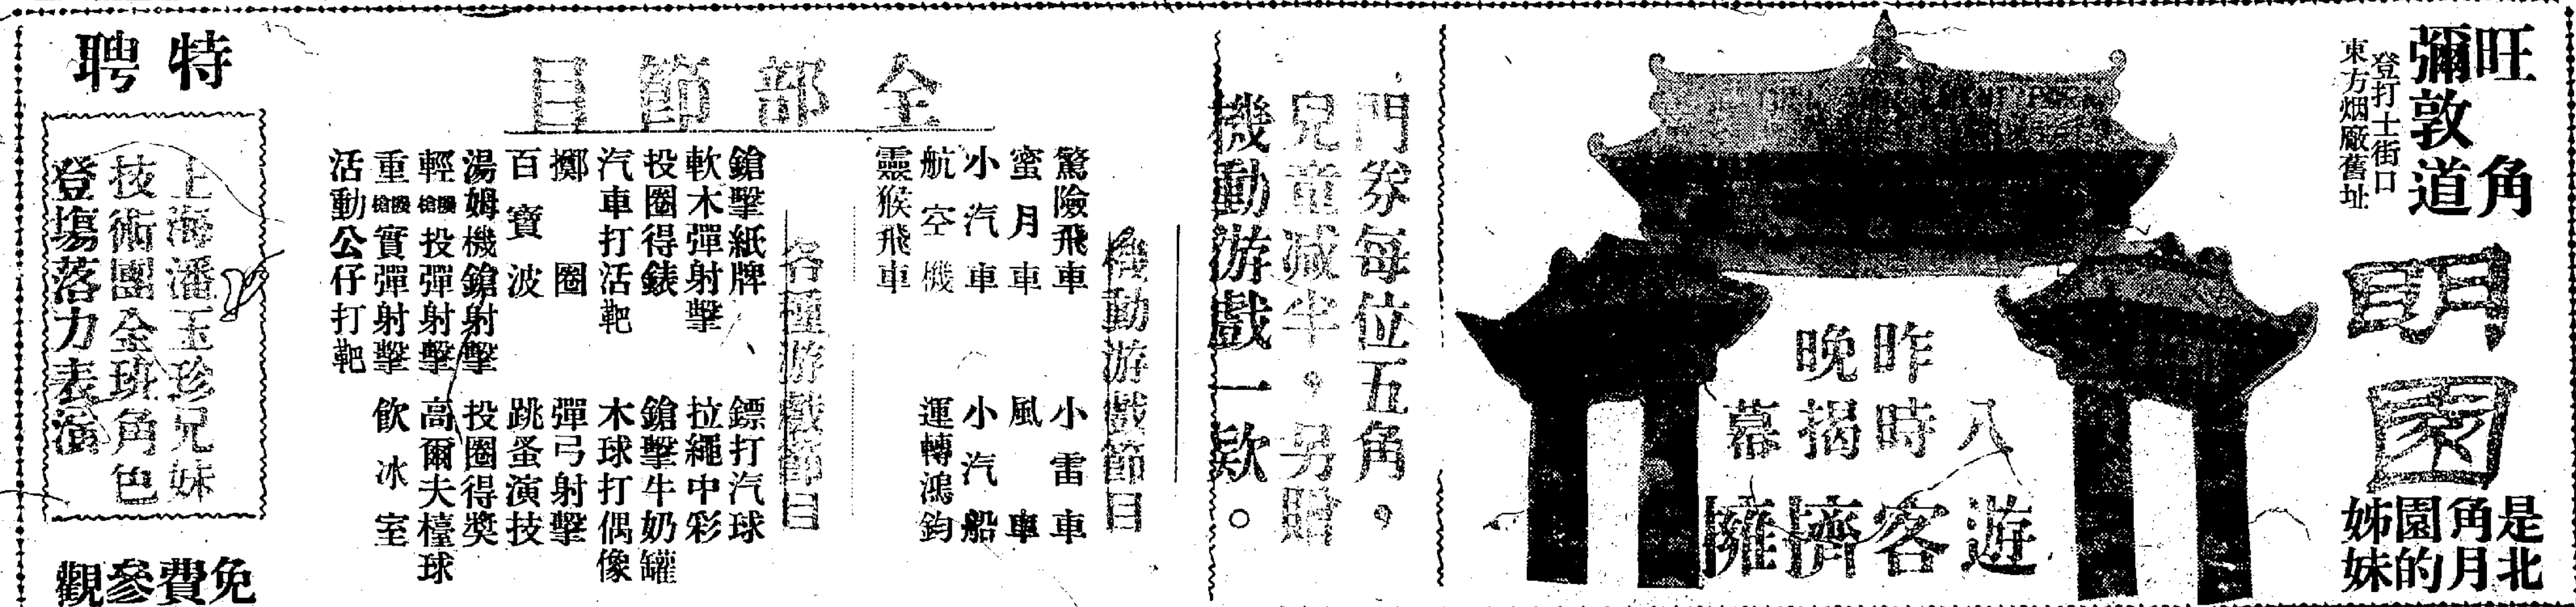 旺角
彌敦道
登打士街口
東方烟廠舊址
明園
是北
角月
園的
姊妹
昨晚八時揭幕
遊客擠擁
門券每位五角，
兒童減半。另贈
機動游戲一欵。
全部節目
機動游戲節目
驚險飛車 小雷車
蜜月車 風車
小汽車 小汽船
航空機 運轉鴻鈞
靈猴飛車
各種游戲節目
鎗擊紙牌 鏢打汽球
軟木彈射擊 拉繩中彩
投圈得錶 鎗擊牛奶罐
汽車打活靶 木球打偶像
擲圈 彈弓射擊
百寶波 跳蚤演技
湯姆機鎗射擊 投圈得獎
輕機槍投彈射擊 高爾夫檯球
重機槍實彈射擊 飲冰室
活動公仔打靶
特聘
上海潘玉珍兄妹
技術團全班角色
登塲落力表演
免費參觀